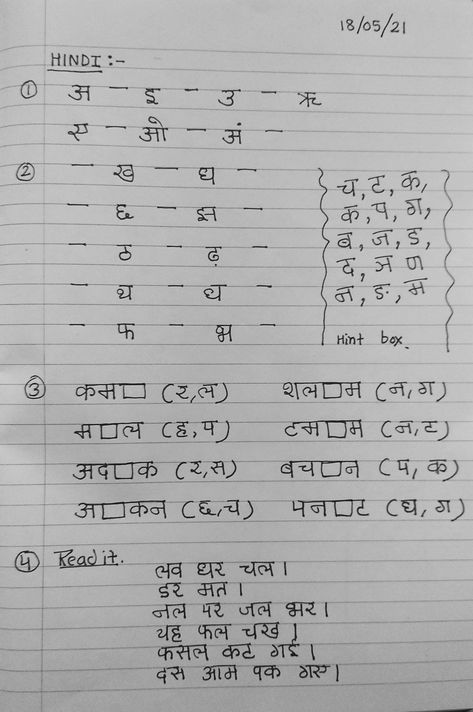 18/05/21
HINDI :-
① अ — इ — उ — ऋ
ए — ओ — अं —
② — ख — घ —
— छ — झ —
— ठ — ढ़ —
— थ — ध —
— फ — भ —
च, ट, क,
क, प, ग,
ब, ज, ड,
द, ञ ण
न, ङ, म
Hint box.
③ कम□ (र,ल) शल□म (न, ग)
म□ल (ह,प) टम□म (न,ट)
अद□क (र,स) बच□न (प, क)
अ□कन (छ,च) पन□ट (घ, ग)
④ Read it.
लव घर चल।
डर मत।
नल पर जल भर।
यह फल चख।
फसल कट गई।
दस आम पक गए।